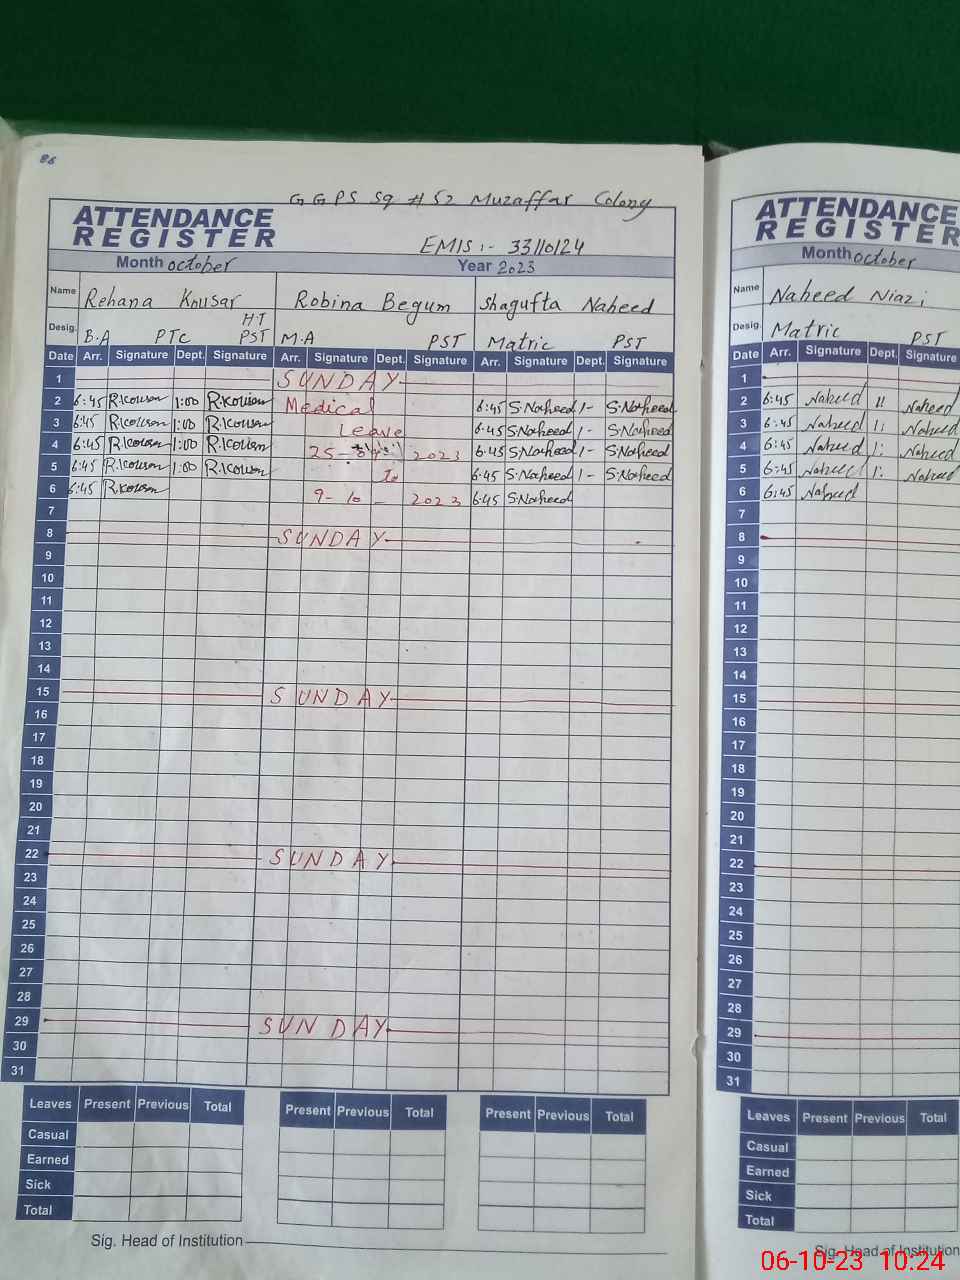 86
G G P S Sq # 52 Muzaffar Colony
ATTENDANCE
REGISTER
EMIS :- 33110124
Month October Year 2023
Name Rehana Kousar Robina Begum Shagufta Naheed
Desig. B.A PTC H.T PST M.A PST Matric PST
Date Arr. Signature Dept. Signature Arr. Signature Dept. Signature Arr. Signature Dept. Signature
1 SUNDAY
2 6:45 R.Kousar 1:00 R.Kousar Medical 6:45 S.Naheed 1- S.Naheed
3 6:45 R.Kousar 1:00 R.Kousar Leave 6:45 S.Naheed 1- S.Naheed
4 6:45 R.Kousar 1:00 R.Kousar 25- 2023 6:45 S.Naheed 1- S.Naheed
5 6:45 R.Kousar 1:00 R.Kousar To 6:45 S.Naheed 1- S.Naheed
6 6:45 R.Kousar 9-10-2023 6:45 S.Naheed
7
8 SUNDAY
9
10
11
12
13
14
15 SUNDAY
16
17
18
19
20
21
22 SUNDAY
23
24
25
26
27
28
29 SUNDAY
30
31
Leaves Present Previous Total Present Previous Total Present Previous Total
Casual
Earned
Sick
Total
Sig. Head of Institution
ATTENDANCE
REGISTER
Month October
Name Naheed Niazi
Desig. Matric PST
Date Arr. Signature Dept. Signature
1
2 6:45 Naheed 1: Naheed
3 6:45 Naheed 1: Naheed
4 6:45 Naheed 1: Naheed
5 6:45 Naheed 1: Naheed
6 6:45 Naheed
7
8
9
10
11
12
13
14
15
16
17
18
19
20
21
22
23
24
25
26
27
28
29
30
31
Leaves Present Previous Total
Casual
Earned
Sick
Total
Sig. Head of Institution
06-10-23 10:24